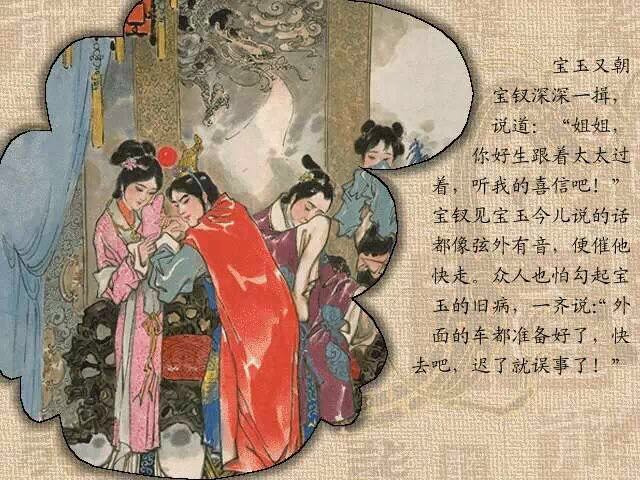 宝玉又朝
宝钗深深一揖，
说道：“姐姐，
你好生跟着太太过
着，听我的喜信吧！”
宝钗见宝玉今儿说的话
都像弦外有音，便催他
快走。众人也怕勾起宝
玉的旧病，一齐说：“外
面的车都准备好了，快
去吧，迟了就误事了！”